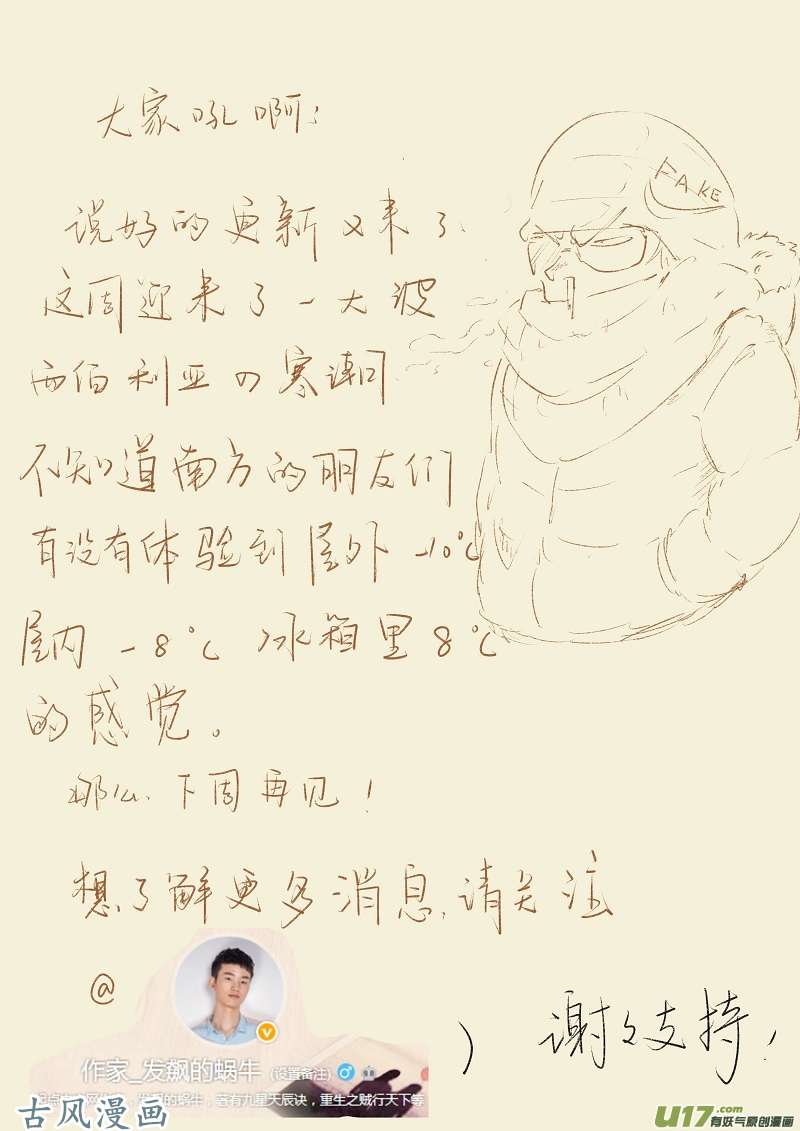 大家吼啊:
FAKE
说好的更新又来了.
这周迎来了一大波
西伯利亚の寒潮
不知道南方的朋友们
有没有体验到屋外-10℃
屋内-8℃ 冰箱里8℃
的感觉。
那么.下周再见!
想了解更多消息.请关注
@
作家_发飙的蜗牛 (设置备注)
发飙的蜗牛,著有九星天辰诀,重生之贼行天下等
) 谢々支持!
古风漫画
U17.com
有妖气原创漫画